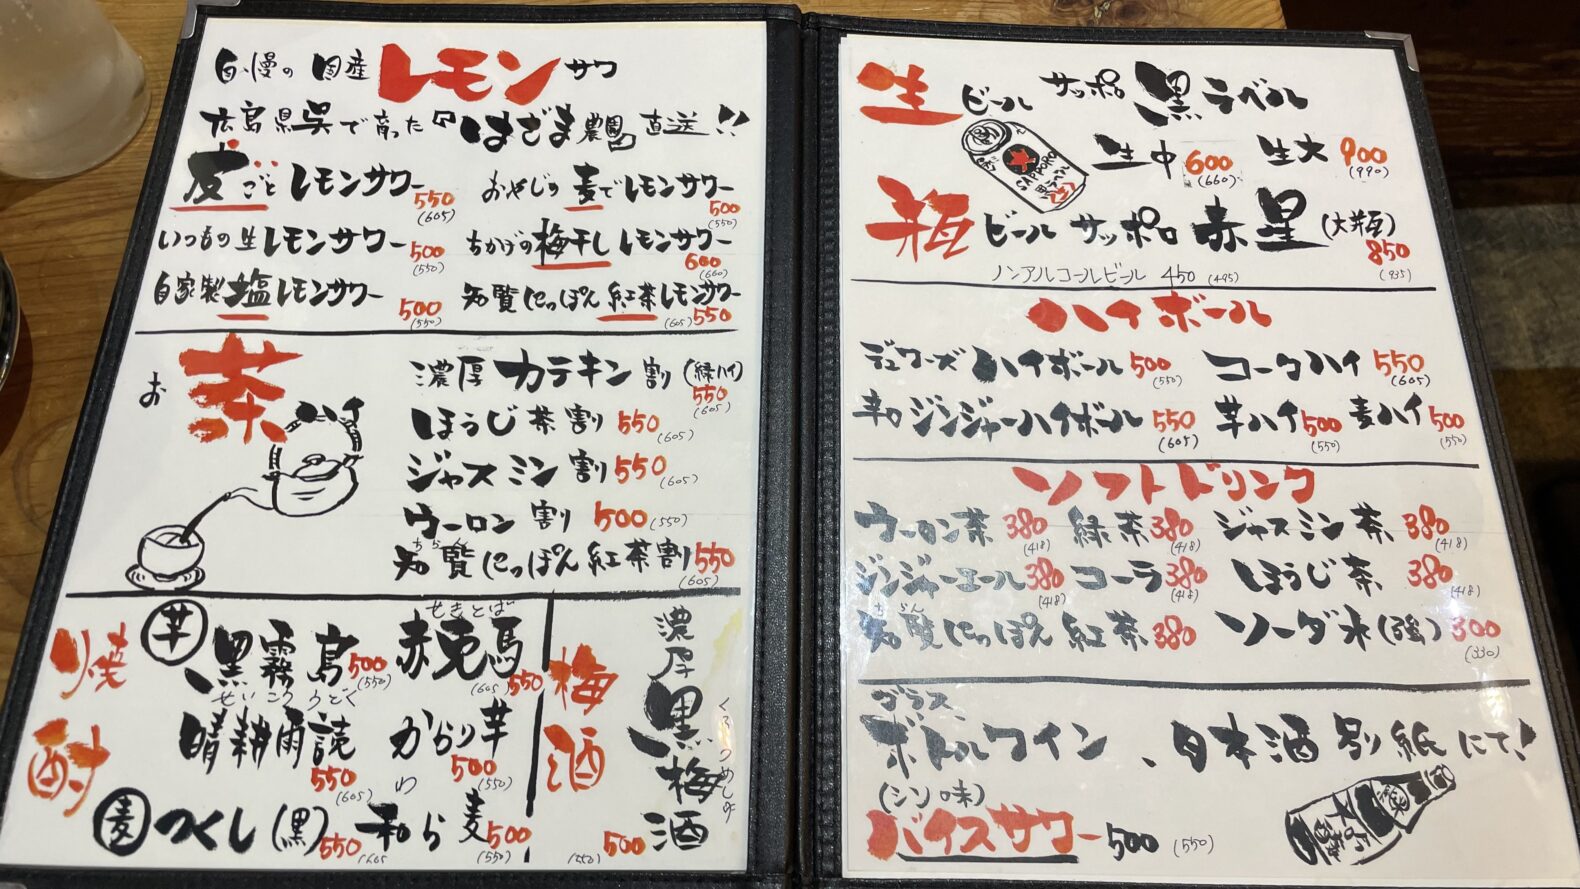 自慢の国産レモンサワ
広島県呉で育った『はざま農園』直送!!
皮ごとレモンサワー 550 (605)
おやじの麦でレモンサワー 500 (550)
いつもの生レモンサワー 500 (550)
ちかげの梅干しレモンサワー 600 (660)
自家製塩レモンサワー 500 (550)
知覧にっぽん紅茶レモンサワー (605) 550
お茶
濃厚カテキン割(緑ハイ) 550 (605)
ほうじ茶割 550 (605)
ジャスミン割 550 (605)
ウーロン割 500 (550)
ちらん
知覧にっぽん紅茶割 550 (605)
焼酎
芋
黒霧島 500 (550)
せきとば
赤兎馬 (605) 550
せいこううどく
晴耕雨読 550 (605)
からり芋 500 (550)
麦
つくし(黒) 550 (605
わ
和ら麦 500 (550)
梅酒
濃厚黒梅酒
(550) 500
生ビール サッポロ黒ラベル
SAPPORO
生中 600 (660) 生大 900 (990)
瓶ビール サッポロ赤星(大瓶) 850 (935)
ノンアルコールビール 450 (495)
ハイボール
デュワーズハイボール 500 (550) コークハイ 550 (605)
辛口ジンジャーハイボール 550 (605) 芋ハイ 500 (550) 麦ハイ 500 (550)
ソフトドリンク
ウーロン茶 380 (418) 緑茶 380 (418) ジャスミン茶 380 (418)
ジンジャーエール 380 (418) コーラ 380 (418) ほうじ茶 380 (418)
ちらん
知覧にっぽん紅茶 380 ソーダ水(強) 300 (330)
グラス、
ボトルワイン、日本酒別紙にて!
(シソ味)
バイスサワー 500 (550)